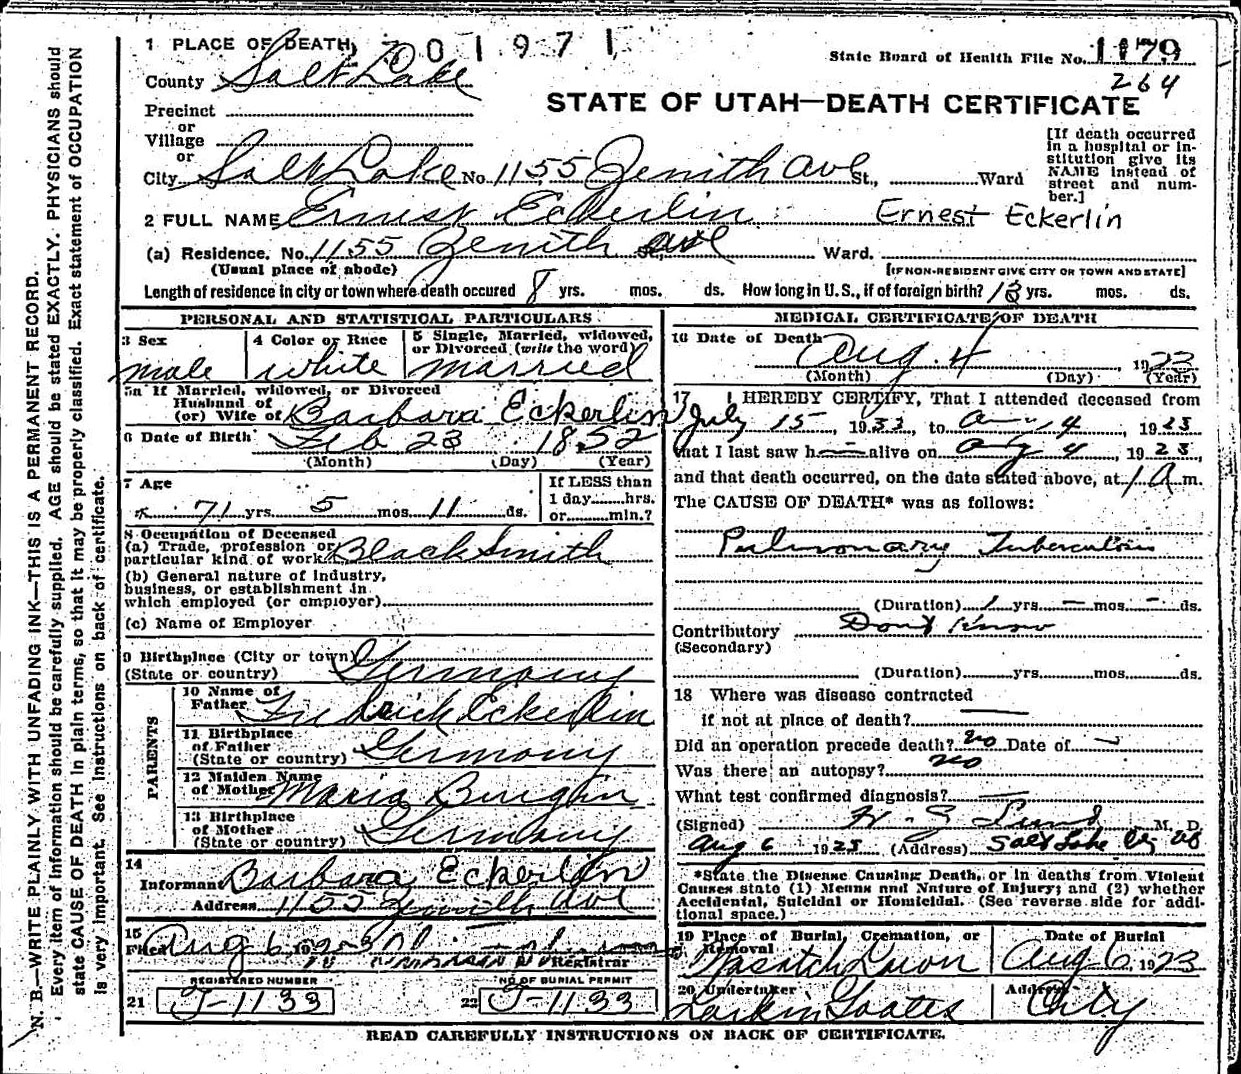 1 PLACE OF DEATH, 701971
State Board of Health File No. 1179
County Salt Lake
264
STATE OF UTAH—DEATH CERTIFICATE
Precinct
or
Village
or
[If death occurred in a hospital or institution give its NAME instead of street and number.]
City Salt Lake No. 1155 Zenith Ave St., Ward
2 FULL NAME Ernest Eckerlin Ernest Eckerlin
(a) Residence. No. 1155 Zenith Ave Ward.
(Usual place of abode) [IF NON-RESIDENT GIVE CITY OR TOWN AND STATE]
Length of residence in city or town where death occured 8 yrs. mos. ds. How long in U.S., if of foreign birth? yrs. mos. ds.
PERSONAL AND STATISTICAL PARTICULARS
3 Sex 4 Color or Race 5 Single, Married, widowed,
or Divorced (write the word)
male white married
5a If Married, widowed, or Divorced
Husband of
(or) Wife of Barbara Eckerlin
6 Date of Birth Feb 23 1852
(Month) (Day) (Year)
7 Age
If LESS than
1 day hrs.
or min.?
71 yrs. 5 mos. 11 ds.
8 Occupation of Deceased
(a) Trade, profession or
particular kind of work Black Smith
(b) General nature of industry,
business, or establishment in
which employed (or employer)
(c) Name of Employer
9 Birthplace (City or town)
(State or country) Germany
PARENTS
10 Name of
Father Fredrick Eckerlin
11 Birthplace
of Father
(State or country) Germany
12 Maiden Name
of Mother Maria
13 Birthplace
of Mother
(State or country) Germany
14
Informant Barbara Eckerlin
Address 1155 Zenith Ave
15
Filed Aug 6, 1923
Registrar
REGISTERED NUMBER NO OF BURIAL PERMIT
21 J-1133 22 J-1133
MEDICAL CERTIFICATE OF DEATH
16 Date of Death Aug. 4 1923
(Month) (Day) (Year)
17 I HEREBY CERTIFY, That I attended deceased from
July 15, 1923, to Aug 4, 1923
that I last saw h alive on Aug 4, 1923,
and that death occurred, on the date stated above, at 1 A m.
The CAUSE OF DEATH* was as follows:
Pulmonary Tuberculosis
(Duration) 1 yrs. — mos. - ds.
Contributory Don't Know
(Secondary)
(Duration) yrs. mos. ds.
18 Where was disease contracted
if not at place of death?
Did an operation precede death? no Date of —
Was there an autopsy? no
What test confirmed diagnosis? —
(Signed) Lund M. D.
Aug 6 1923 (Address) Salt Lake City
*State the Disease Causing Death, or in deaths from Violent
Causes state (1) Means and Nature of Injury; and (2) whether
Accidental, Suicidal or Homicidal. (See reverse side for additional space.)
19 Place of Burial, Cremation, or Removal Date of Burial
Wasatch Lawn Aug 6, 1923
20 Undertaker Address
Larkin City
READ CAREFULLY INSTRUCTIONS ON BACK OF CERTIFICATE.
N. B.—WRITE PLAINLY WITH UNFADING INK—THIS IS A PERMANENT RECORD.
Every item of information should be carefully supplied. AGE should be stated EXACTLY. PHYSICIANS should
state CAUSE OF DEATH in plain terms, so that it may be properly classified. Exact statement of OCCUPATION
is very important. See instructions on back of certificate.